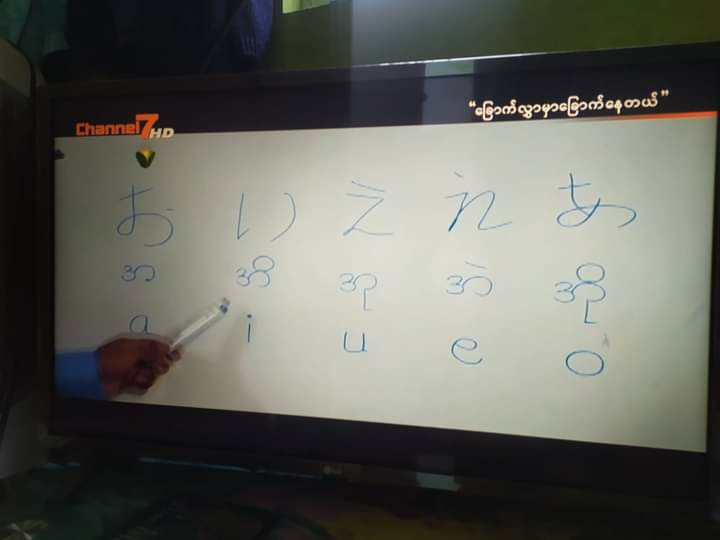 Channel 7 HD
“ခြောက်လွှာမှာခြောက်နေတယ်”
お い え あ
အ အိ အု အဲ အို
a i u e o
LG